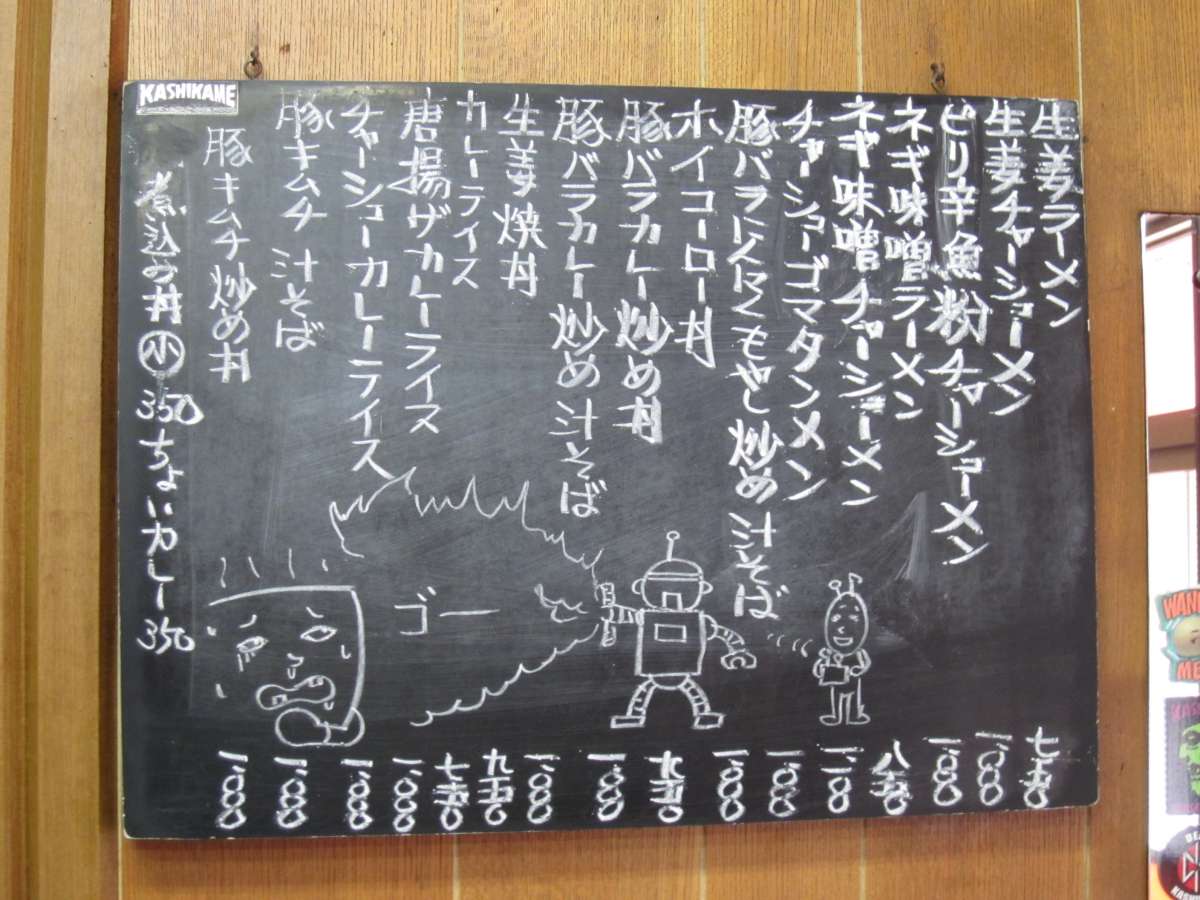 生姜ラーメン 七五〇
生姜チャーシューメン 一、〇〇〇
ピリ辛魚粉チャーシューメン 一、〇〇〇
ネギ味噌ラーメン 八五〇
ネギ味噌チャーシューメン 一、一〇〇
チャーシューゴマタンメン 一、〇〇〇
豚バラにんにくもやし炒め汁そば 一、〇〇〇
ホイコーロー丼 九五〇
豚バラカレー炒め丼 一、〇〇〇
豚バラカレー炒め汁そば 一、〇〇〇
生姜焼丼 九五〇
カレーライス 七五〇
唐揚ゲカレーライス 一、〇〇〇
チャーシューカレーライス 一、〇〇〇
豚キムチ汁そば 一、〇〇〇
豚キムチ炒め丼 一、〇〇〇
煮込み丼 小 350 ちょいカレー 350
ゴー
KASHIKAME